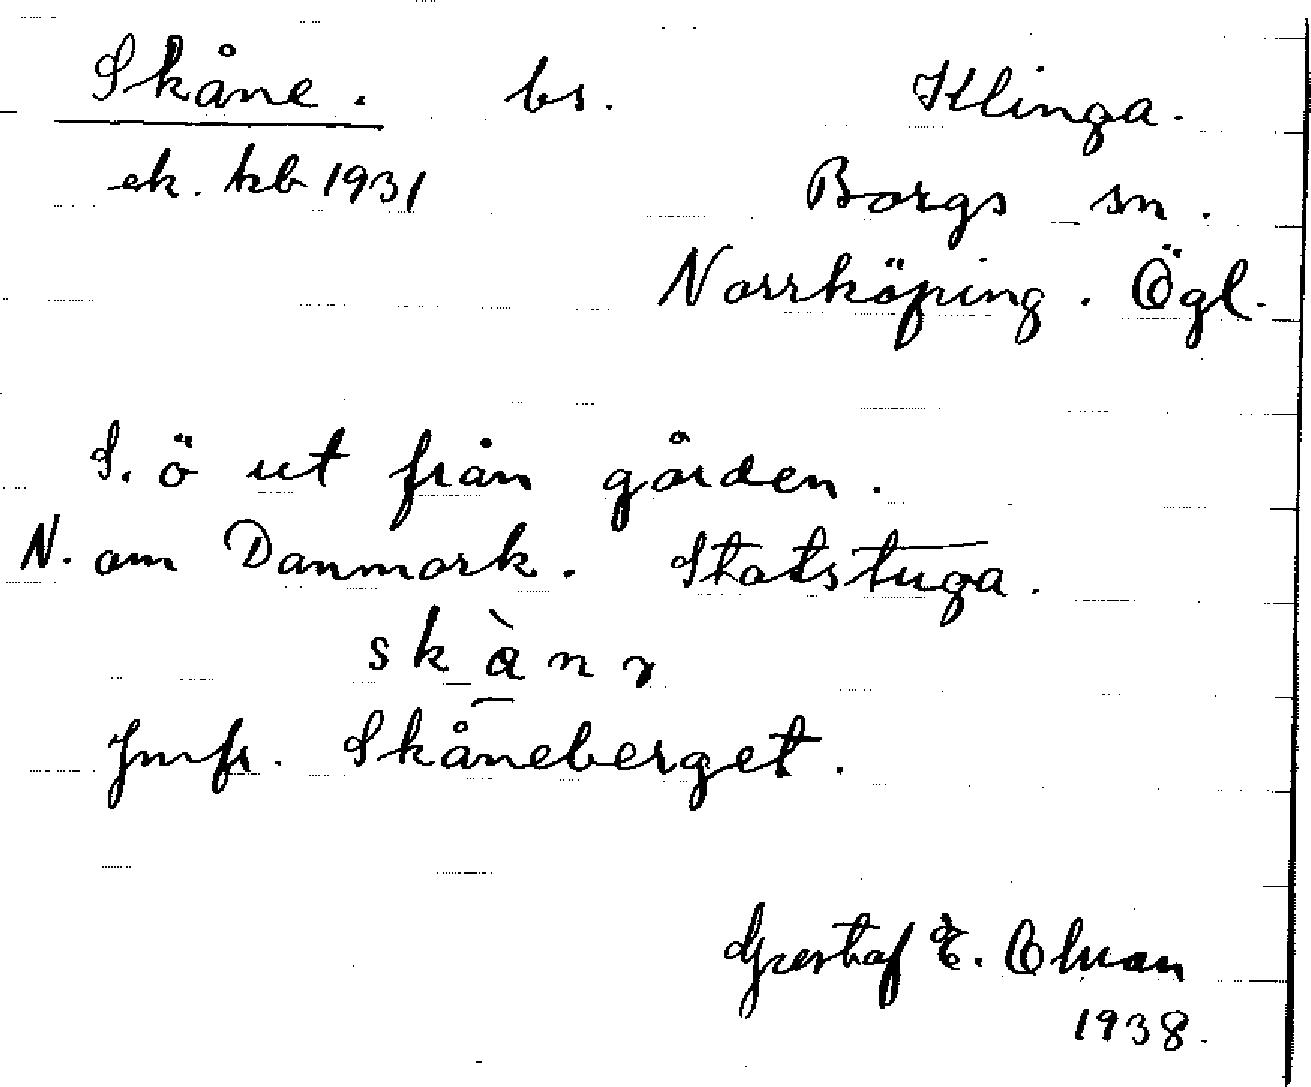 Skåne. bs. Klinga.
ek. kb 1931 Borgs sn.
Norrköping. Ögl.
S. ö ut från gården.
N. om Danmark. Statstuga.
skànɤ
Jmfr. Skåneberget.
Gustaf E. Olsson
1938.